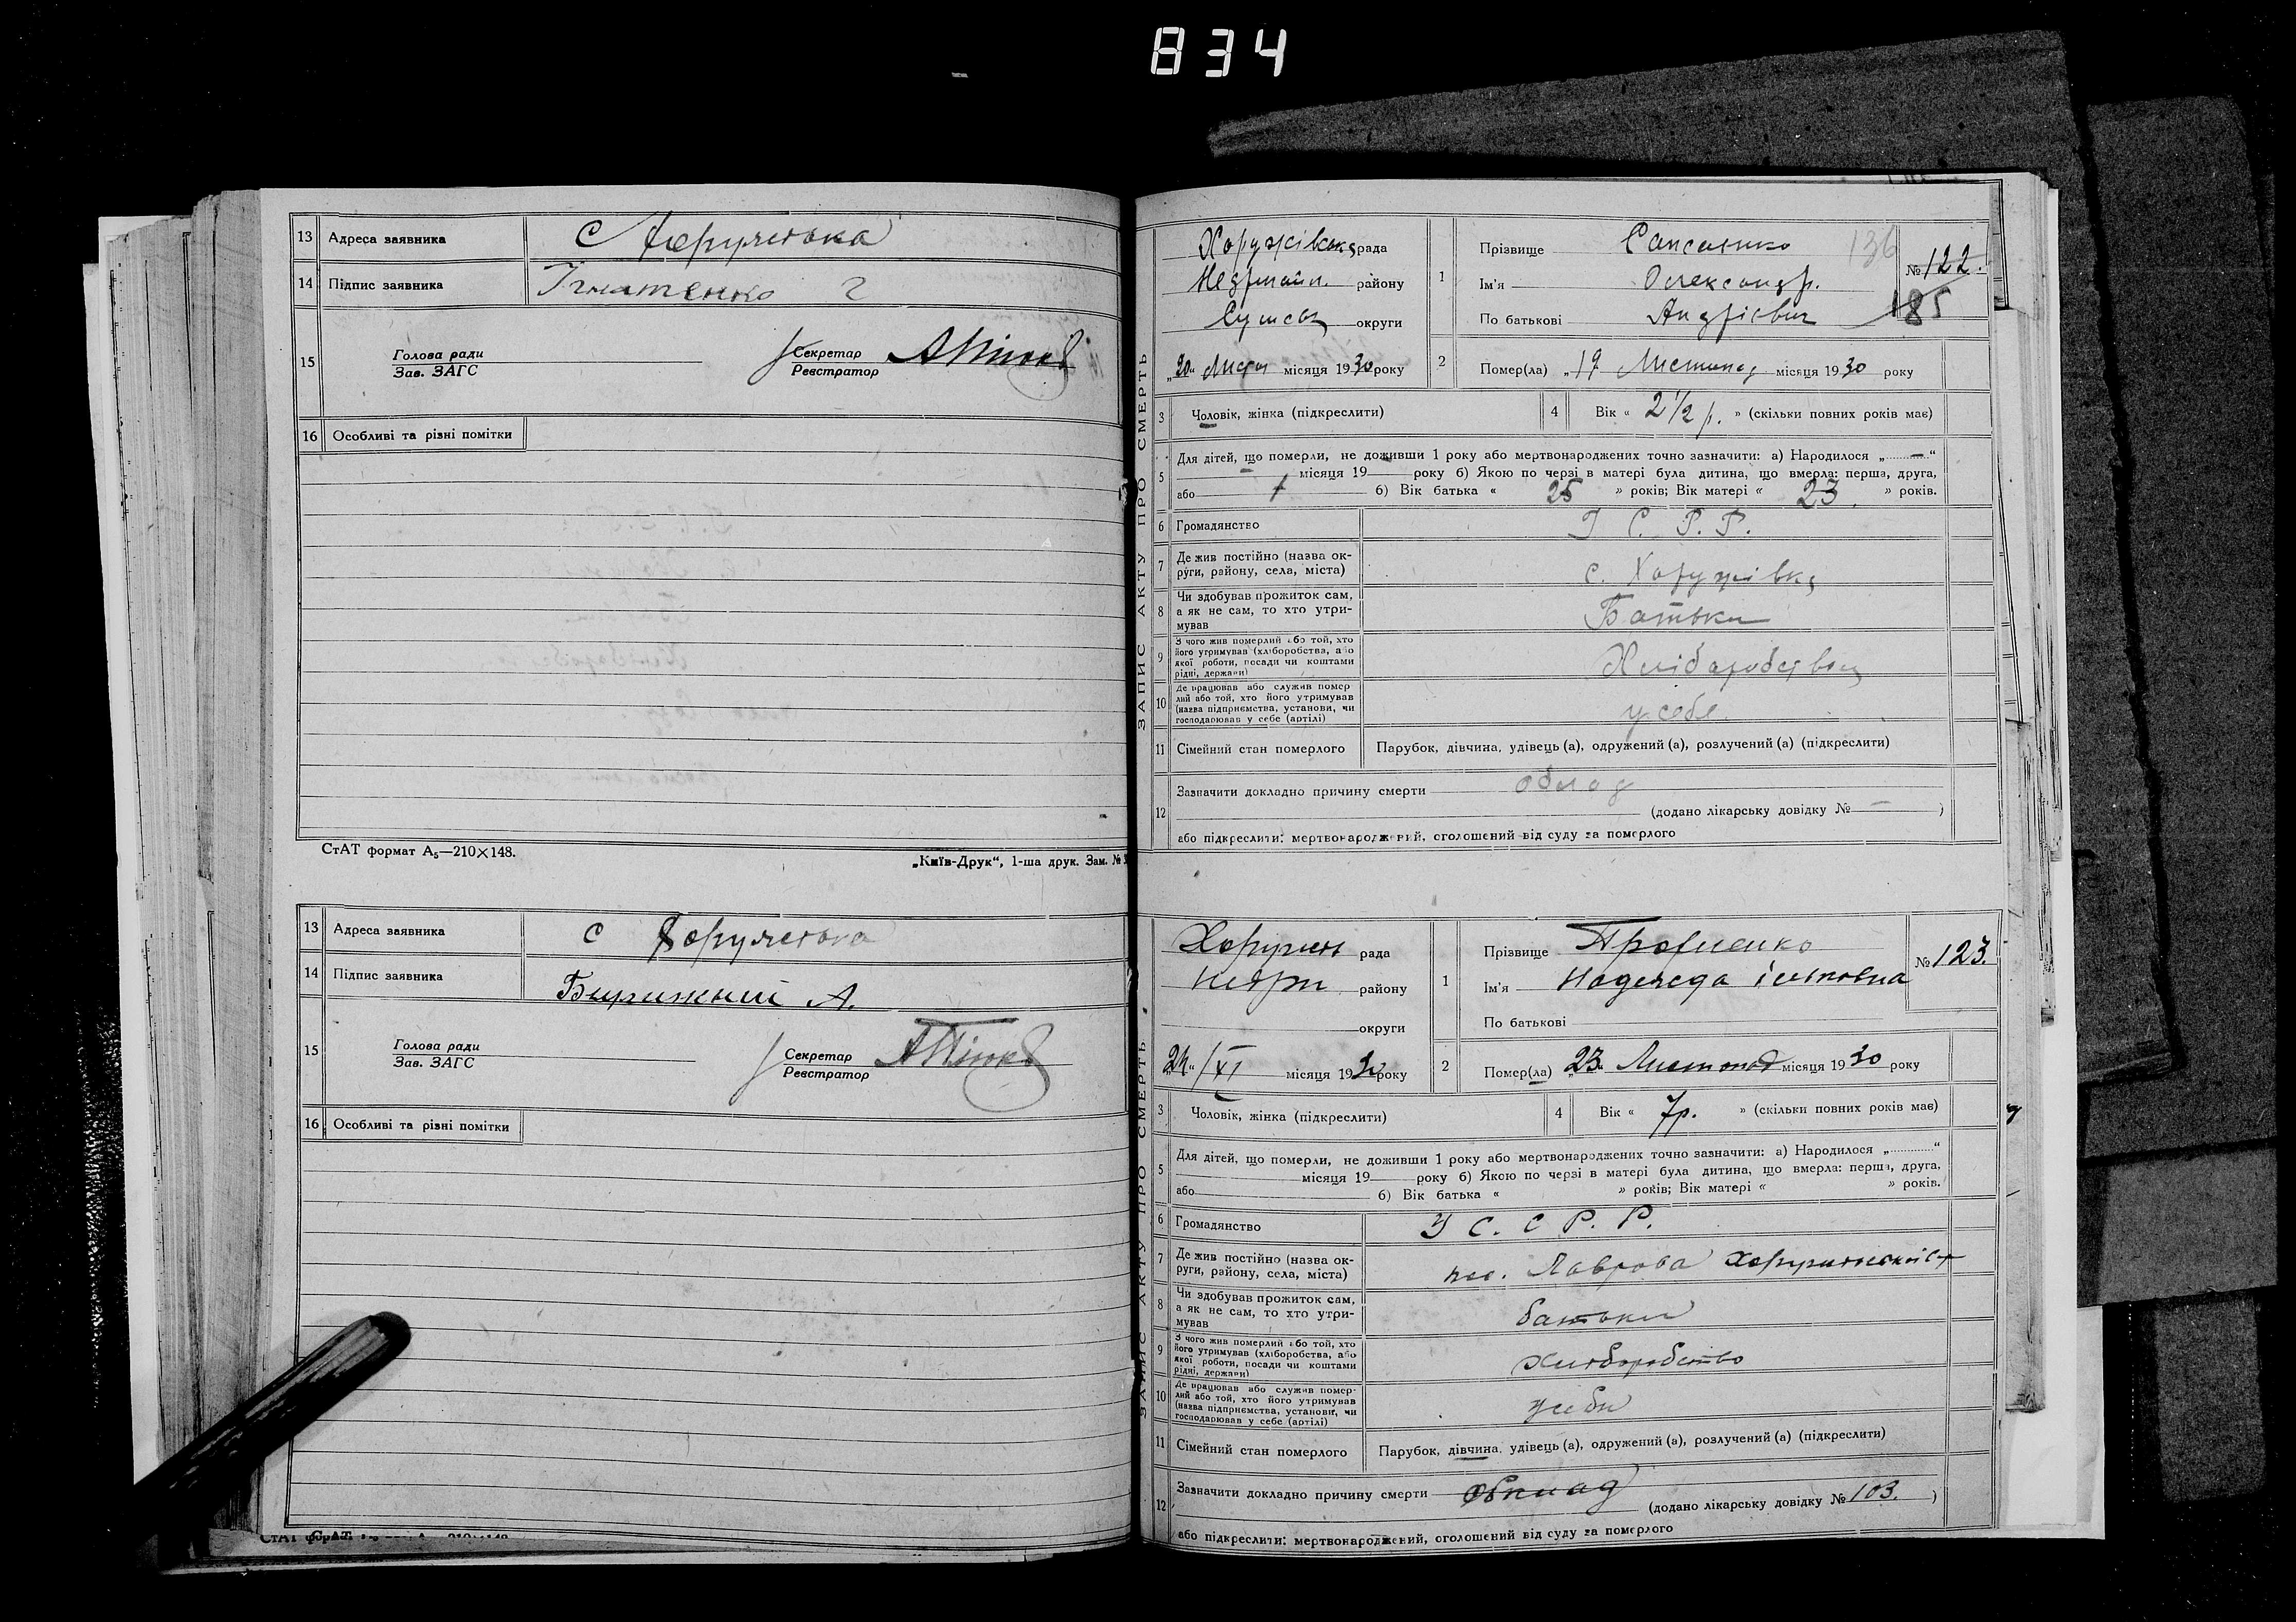 834
13 Адреса заявника С
14 Підпис заявника Ігнатенко
15 Голова ради
Зав. ЗАГС
Секретар
Реєстратор
16 Особливі та різні помітки
СтАТ формат А5—210×148.
„Київ-Друк“, 1-ша друк. Зам. №
13 Адреса заявника с
14 Підпис заявника Бирижний А.
15 Голова ради
Зав. ЗАГС
Секретар
Реєстратор
16 Особливі та різні помітки
ЗАПИС АКТУ ПРО СМЕРТЬ
Харужівська рада
району
округи
„20“ місяця 1930 року
1 Прізвище
136
Ім'я Олександр.
По батькові Андрієвич
№ 122.
185
2 Помер(ла) „19 Листопад місяця 1930 року
3 Чоловік, жінка (підкреслити)
4 Вік « 2 1/2 р. » (скільки повних років має)
5 Для дітей, що померли, не доживши 1 року або мертвонароджених точно зазначити: а) Народилося „ — “
— місяця 19 року б) Якою по черзі в матері була дитина, що вмерла: перша, друга,
або 6) Вік батька « 25 » років; Вік матері « 23 » років.
6 Громадянство С. Р. Р.
7 Де жив постійно (назва округи, району, села, міста) с. Харужівка
8 Чи здобував прожиток сам, а як не сам, то хто утримував Батьки
9 З чого жив померлий або той, хто його утримував (хліборобства, або якої роботи, посади чи коштами рідні, держави)
10 Де працював або служив померлий або той, хто його утримував (назва підприємства, установи, чи господарював у себе (артілі) у себе
11 Сімейний стан померлого Парубок, дівчина, удівець (а), одружений (а), розлучений (а) (підкреслити)
12 Зазначити докладно причину смерти
(додано лікарську довідку № — )
або підкреслити: мертвонароджений, оголошений від суду за померлого
ЗАПИС АКТУ ПРО СМЕРТЬ
рада
району
округи
24 /XI місяця 1930 року
1 Прізвище
Ім'я Надежда
По батькові
№ 123.
2 Помер(ла) „23“ Листопад місяця 1930 року
3 Чоловік, жінка (підкреслити)
4 Вік « 7р. » (скільки повних років має)
5 Для дітей, що померли, не доживши 1 року або мертвонароджених точно зазначити: а) Народилося „ “
місяця 19 року б) Якою по черзі в матері була дитина, що вмерла: перша, друга,
або 6) Вік батька « » років; Вік матері « » років.
6 Громадянство У С. С Р. Р.
7 Де жив постійно (назва округи, району, села, міста) пос. Лаврова
8 Чи здобував прожиток сам, а як не сам, то хто утримував батьки
9 З чого жив померлий або той, хто його утримував (хліборобства, або якої роботи, посади чи коштами рідні, держави) хлиборобство
10 Де працював або служив померлий або той, хто його утримував (назва підприємства, установи, чи господарював у себе (артілі)
11 Сімейний стан померлого Парубок, дівчина, удівець (а), одружений (а), розлучений (а) (підкреслити)
12 Зазначити докладно причину смерти
(додано лікарську довідку № 103. )
або підкреслити: мертвонароджений, оголошений від суду за померлого